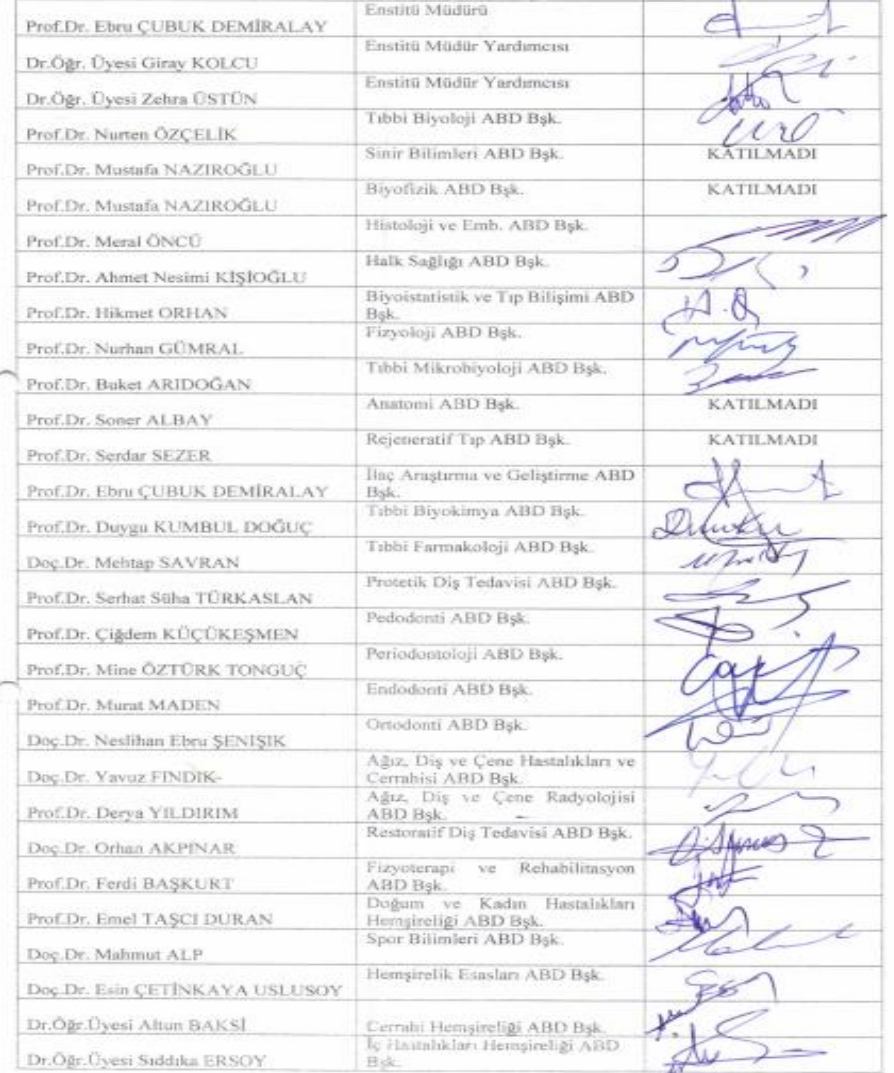 Prof.Dr. Ebru ÇUBUK DEMİRALAY Enstitü Müdürü
Dr.Öğr. Üyesi Giray KOLCU Enstitü Müdür Yardımcısı
Dr.Öğr. Üyesi Zehra ÜSTÜN Enstitü Müdür Yardımcısı
Prof.Dr. Nurten ÖZÇELİK Tıbbi Biyoloji ABD Bşk.
Prof.Dr. Mustafa NAZIROĞLU Sinir Bilimleri ABD Bşk. KATILMADI
Prof.Dr. Mustafa NAZIROĞLU Biyofizik ABD Bşk. KATILMADI
Prof.Dr. Meral ÖNCÜ Histoloji ve Emb. ABD Bşk.
Prof.Dr. Ahmet Nesimi KİŞİOĞLU Halk Sağlığı ABD Bşk.
Prof.Dr. Hikmet ORHAN Biyoistatistik ve Tıp Bilişimi ABD
Bşk.
Prof.Dr. Nurhan GÜMRAL Fizyoloji ABD Bşk.
Prof.Dr. Buket ARIDOĞAN Tıbbi Mikrobiyoloji ABD Bşk.
Prof.Dr. Soner ALBAY Anatomi ABD Bşk. KATILMADI
Prof.Dr. Serdar SEZER Rejeneratif Tıp ABD Bşk. KATILMADI
Prof.Dr. Ebru ÇUBUK DEMİRALAY İlaç Araştırma ve Geliştirme ABD
Bşk.
Prof.Dr. Duygu KUMBUL DOĞUÇ Tıbbi Biyokimya ABD Bşk.
Doç.Dr. Mehtap SAVRAN Tıbbi Farmakoloji ABD Bşk.
Prof.Dr. Serhat Süha TÜRKASLAN Protetik Diş Tedavisi ABD Bşk.
Prof.Dr. Çiğdem KÜÇÜKEŞMEN Pedodonti ABD Bşk.
Prof.Dr. Mine ÖZTÜRK TONGUÇ Periodontoloji ABD Bşk.
Prof.Dr. Murat MADEN Endodonti ABD Bşk.
Doç.Dr. Neslihan Ebru ŞENIŞIK Ortodonti ABD Bşk.
Doç.Dr. Yavuz FINDIK Ağız, Diş ve Çene Hastalıkları ve
Cerrahisi ABD Bşk.
Prof.Dr. Derya YILDIRIM Ağız, Diş ve Çene Radyolojisi
ABD Bşk.
Doç.Dr. Orhan AKPINAR Restoratif Diş Tedavisi ABD Bşk.
Prof.Dr. Ferdi BAŞKURT Fizyoterapi ve Rehabilitasyon
ABD Bşk.
Prof.Dr. Emel TAŞÇI DURAN Doğum ve Kadın Hastalıkları
Hemşireliği ABD Bşk.
Doç.Dr. Mahmut ALP Spor Bilimleri ABD Bşk.
Doç.Dr. Esin ÇETİNKAYA USLUSOY Hemşirelik Esasları ABD Bşk.
Dr.Öğr.Üyesi Altun BAKSİ Cerrahi Hemşireliği ABD Bşk.
Dr.Öğr.Üyesi Sıddıka ERSOY İç Hastalıkları Hemşireliği ABD
Bşk.